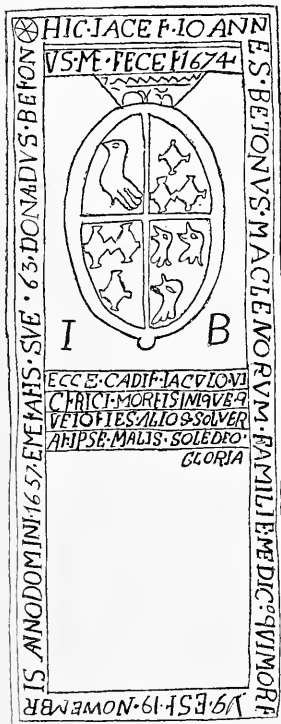 HIC·JACET·IOANN
ES·BETONVS·MACLENORVM·FAMILIE MEDIC9·QVI MORT
V9·EST·19·NOWEMBR
IS ANNO DOMINI·1657·EM ETATIS·SVE·63·DONADVS·BETON
VS·ME·FECET 1674
I B
ECCE·CADIT·IACVLO·VI
CTRICI·MORTIS INIQVE·Q
VE TOTIES·ALIOS·SOLVER
AT IPSE·MALIS·SOLE DEO·
GLORIA